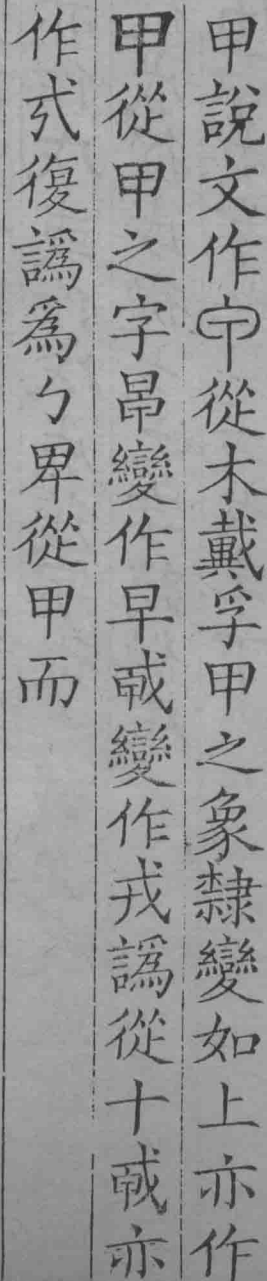 甲說文作𤰒從木戴孚甲之象隸變如上亦作
甲從甲之字𣅔變作早𢧢變作戎譌從十𢧢亦
作弍復譌爲勹𤰞從甲而